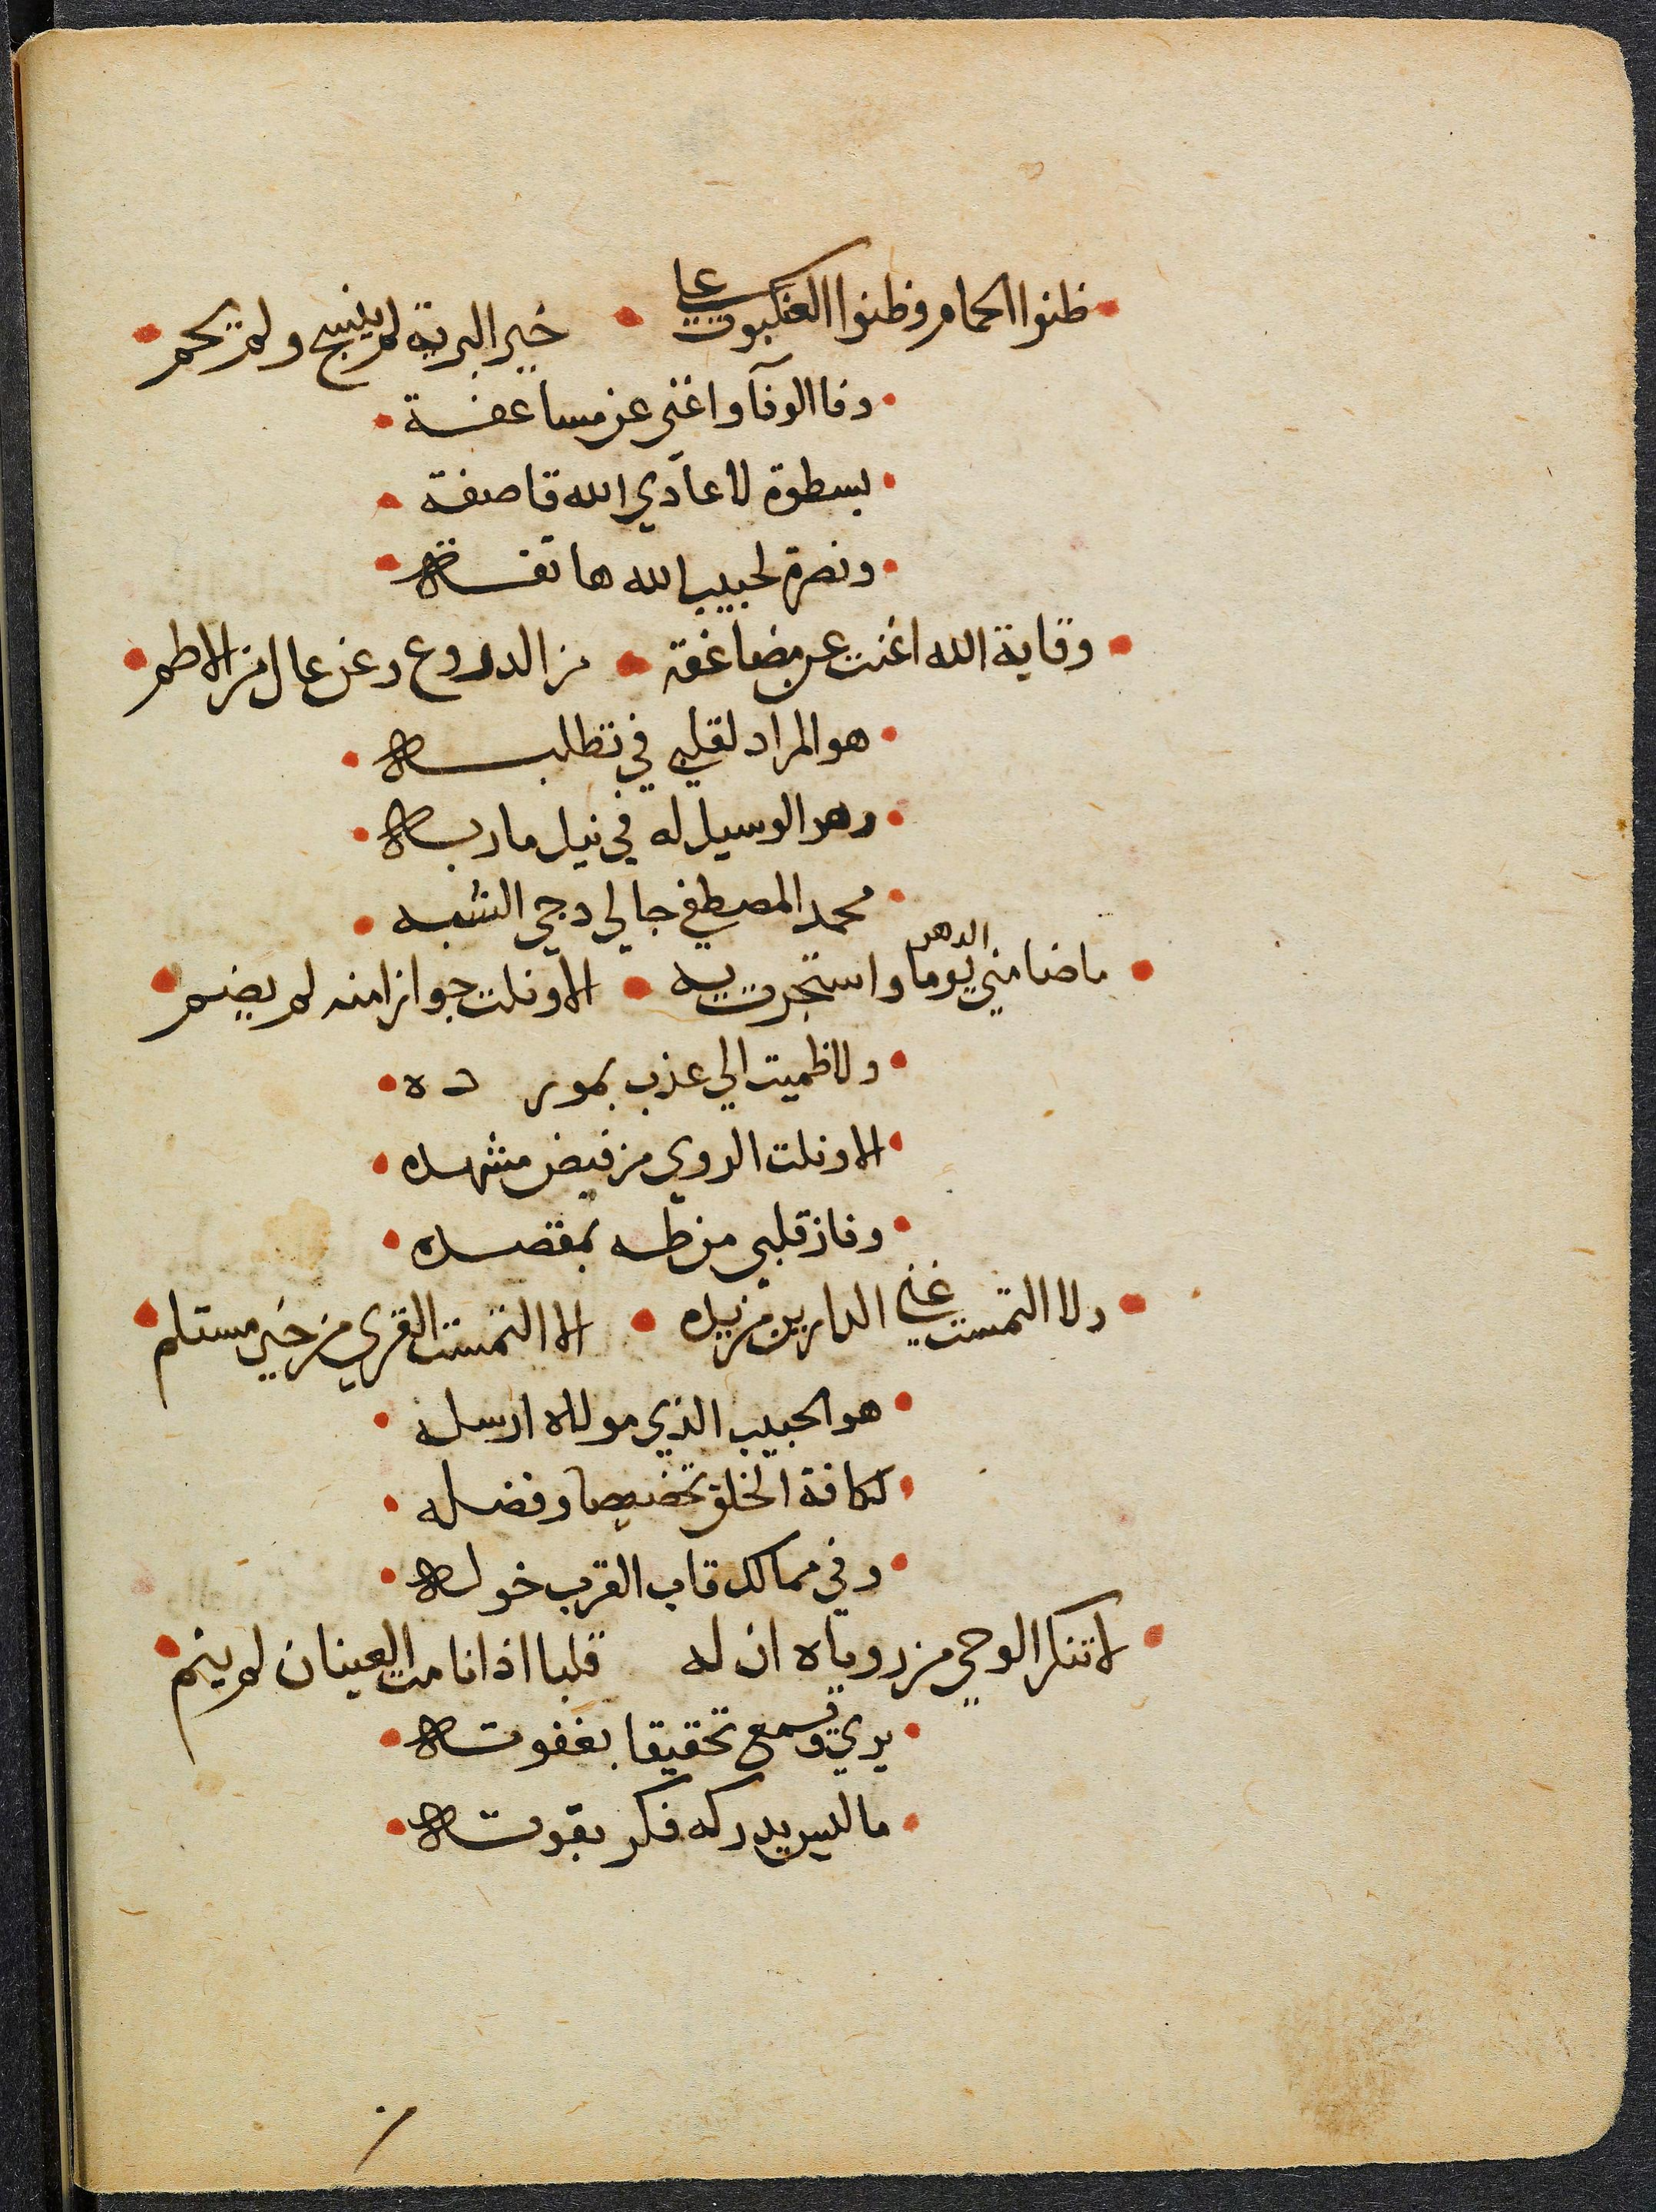 ظنوا الحمام وظنوا العنكبوت علي • خير البرية لم ينسج ولم يحم
وفا الوفآ واغني عن مساعفة
بسطوة لاعادي الله قاصفة
ونصرة لحبيب الله هاتفة
وقاية الله اغنت عن مضاعفة • من الدروع وعن عال من الاطم
هو المراد لقلبي في تطلبه
وهو الوسيل له في نيل ماربه
محمد المصطفي جالي دجي الشبه
ما ضامني الدهر يوما واستجرت به • الا ونلت جوازا منه لم يضم
ولا ظميت الي عذب بمورده
الا ونلت الروي من فيض مشهده
وفاز قلبي من طه بمقصده
ولا التمست غني الدارين من يده • الا التمست القري من خير مستلم
هو الحبيب الذي مولاه ارسله
لكافة الخلق تخصيصا وفضله
وفي ممالك قاب القرب خوله
لا تنكر الوحي من روياه ان له قلبا اذا نامت العينان لم ينم
يري ويسمع تحقيقا بغفوته
ما ليس يدركه فكر بقوته